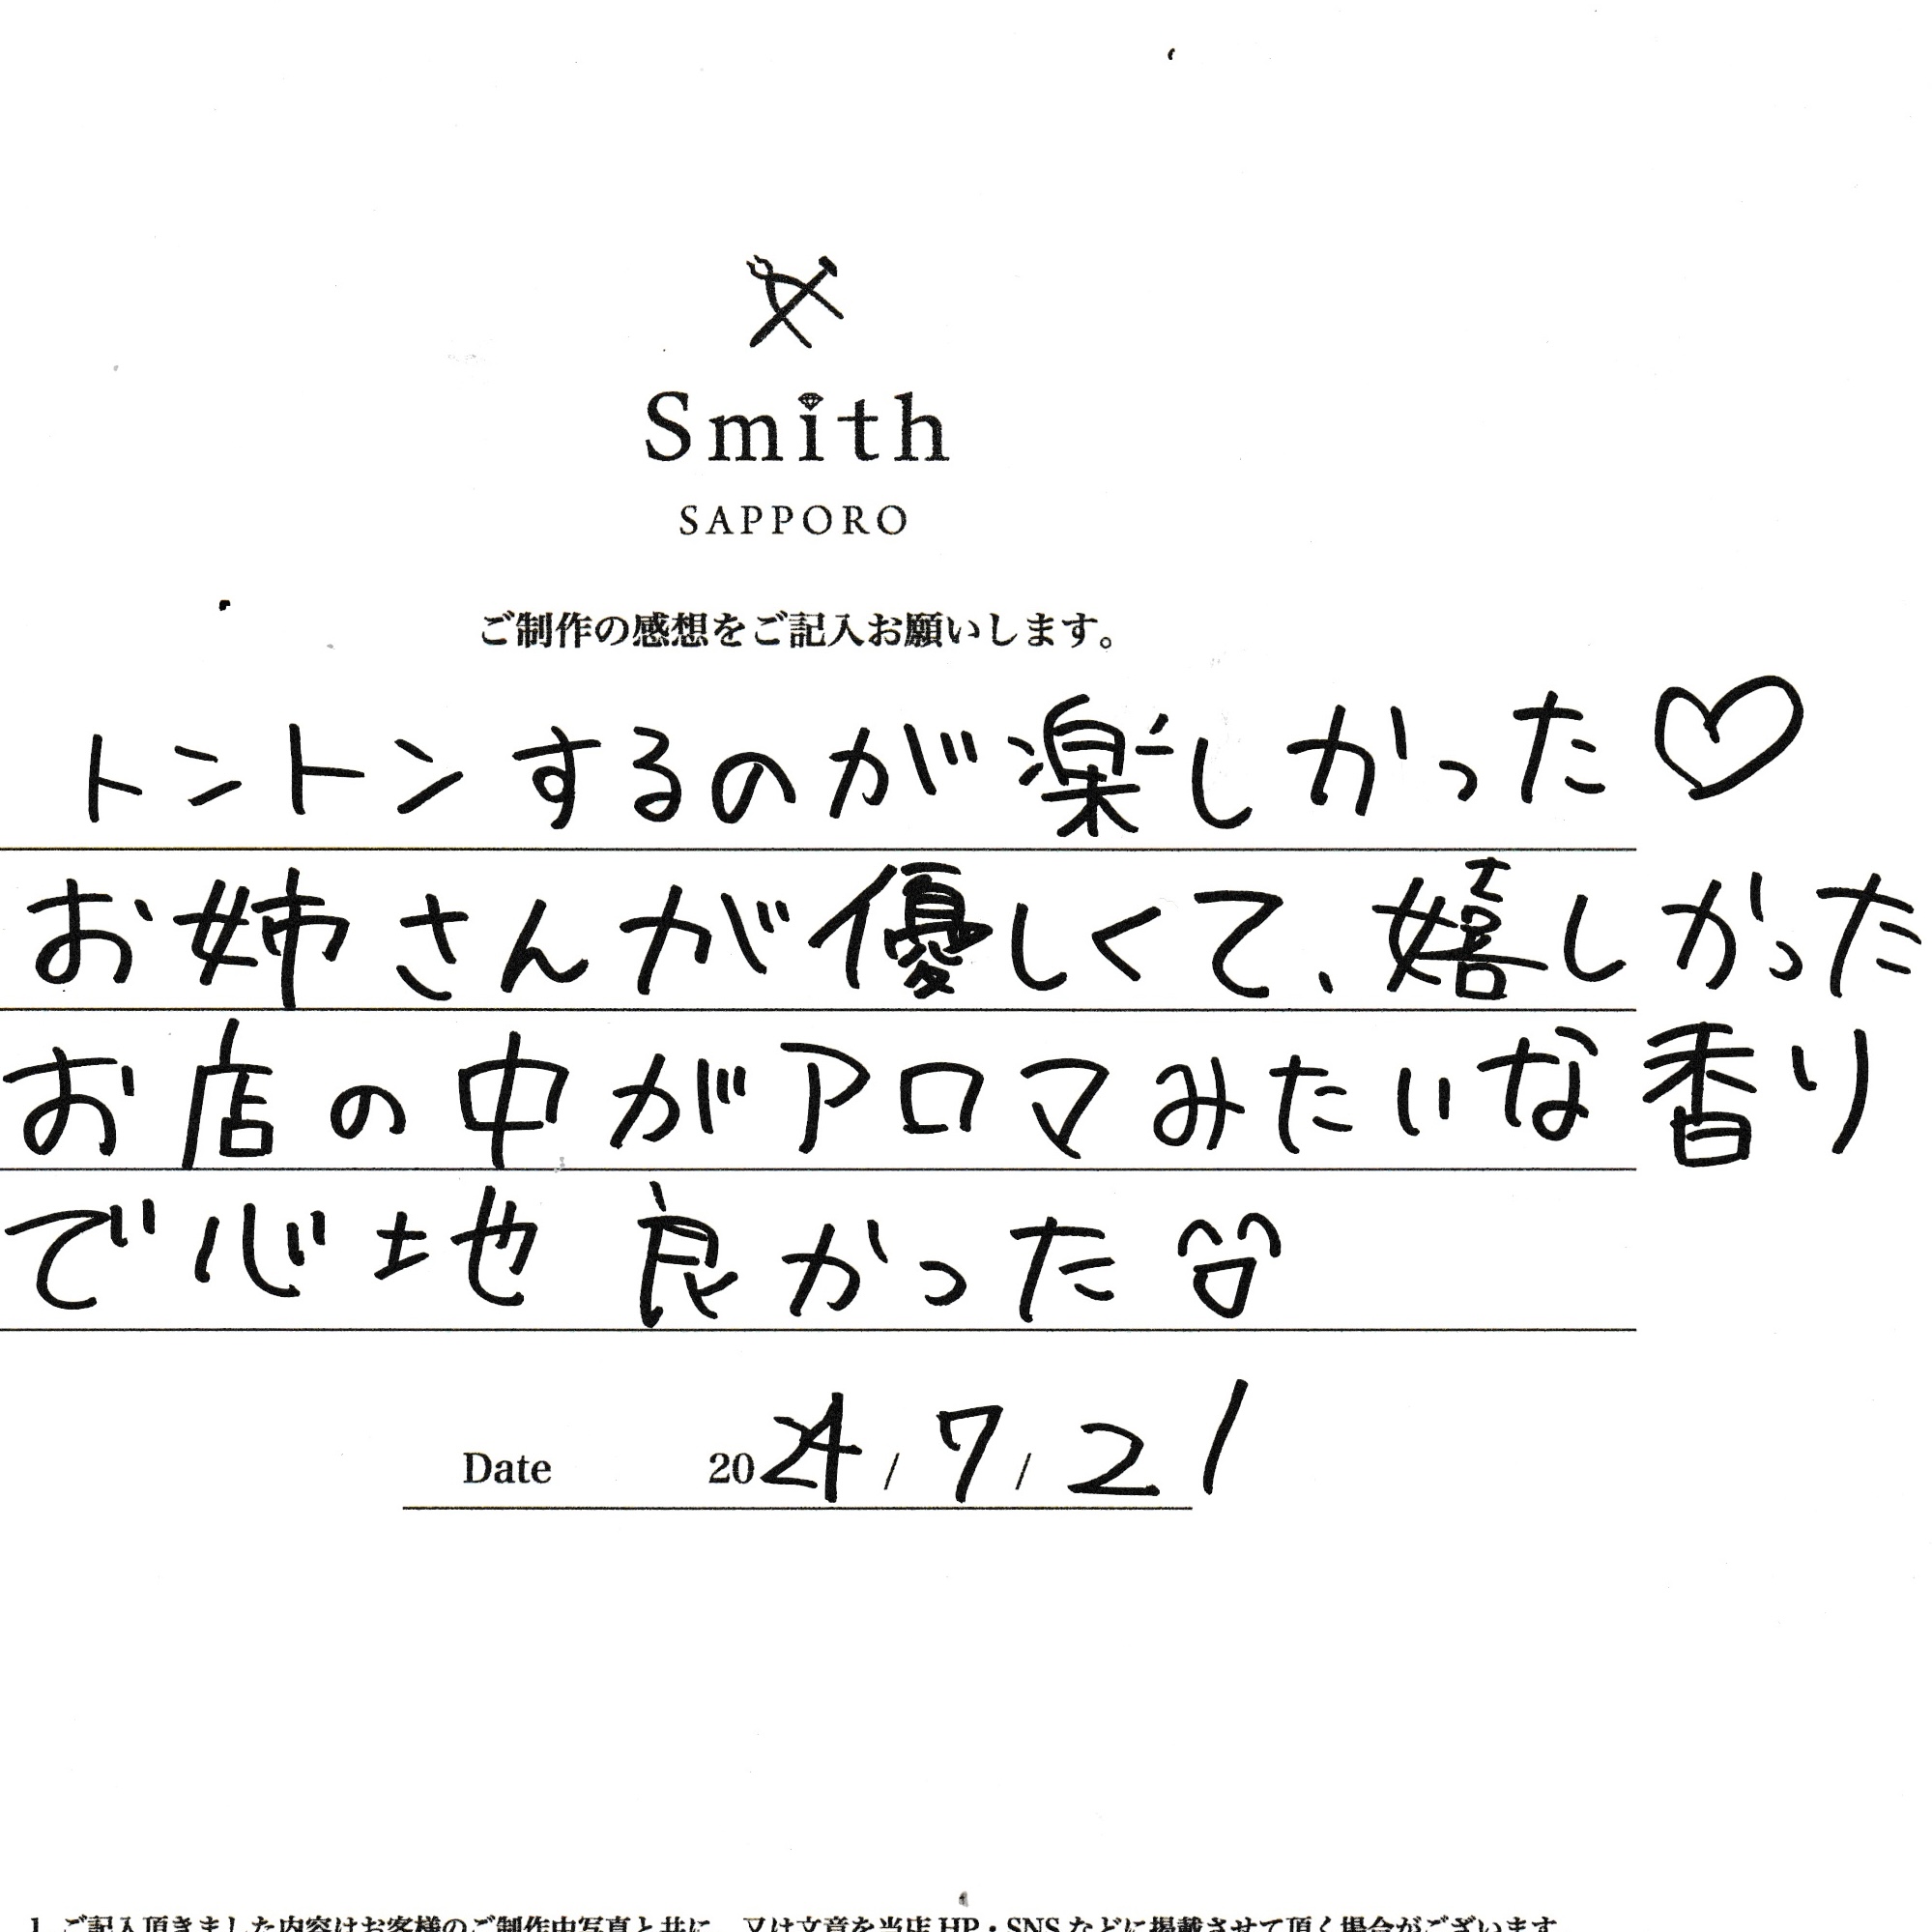 Smith
SAPPORO
ご制作の感想をご記入お願いします。
トントンするのが楽しかった♡
お姉さんが優しくて、嬉しかった
お店の中がアロマみたいな香り
で心地良かった
Date 2024/7/21
1. ご記入頂きました内容はお客様のご制作中写真と共に、又は文章を当店HP・SNSなどに掲載させて頂く場合がございます。